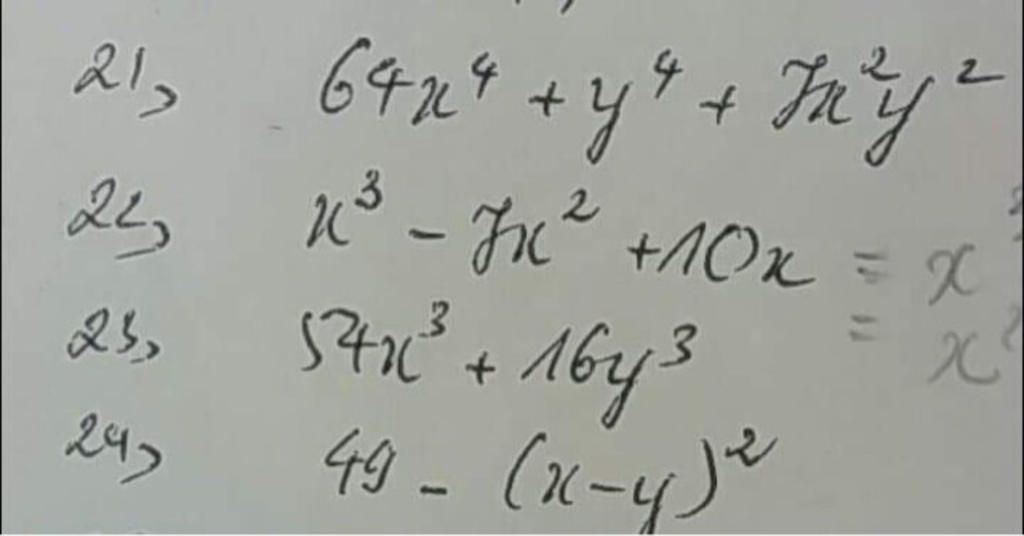 21, 64x⁴ + y⁴ + 7x²y²
22, x³ - 7x² + 10x = x
= x
23, 54x³ + 16y³
24, 49 - (x-y)²